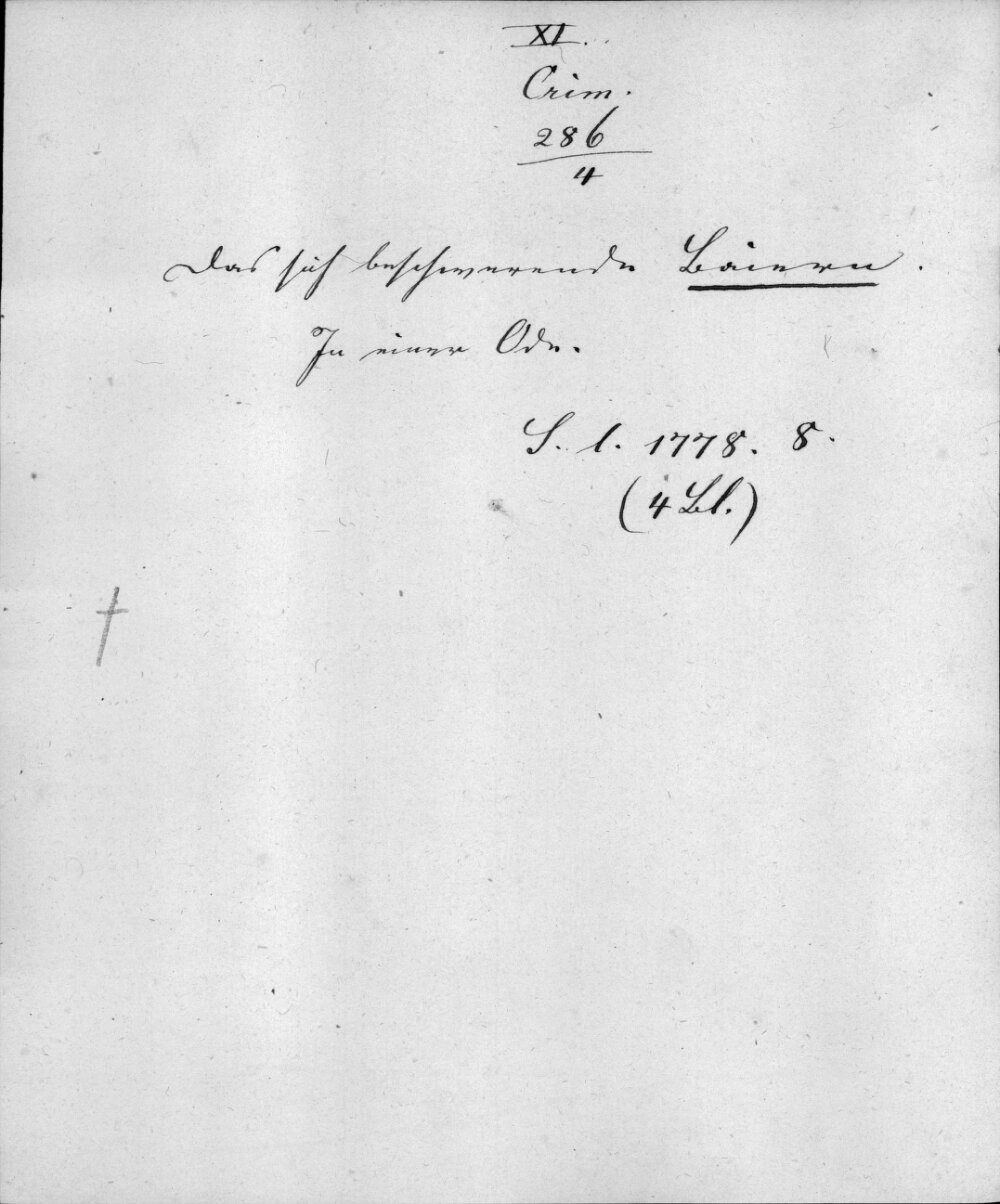 XI.
Crim.
286
4
Das sich beschwerende Baiern.
In einer Ode.
S. l. 1778. 8.
(4 Bl.)